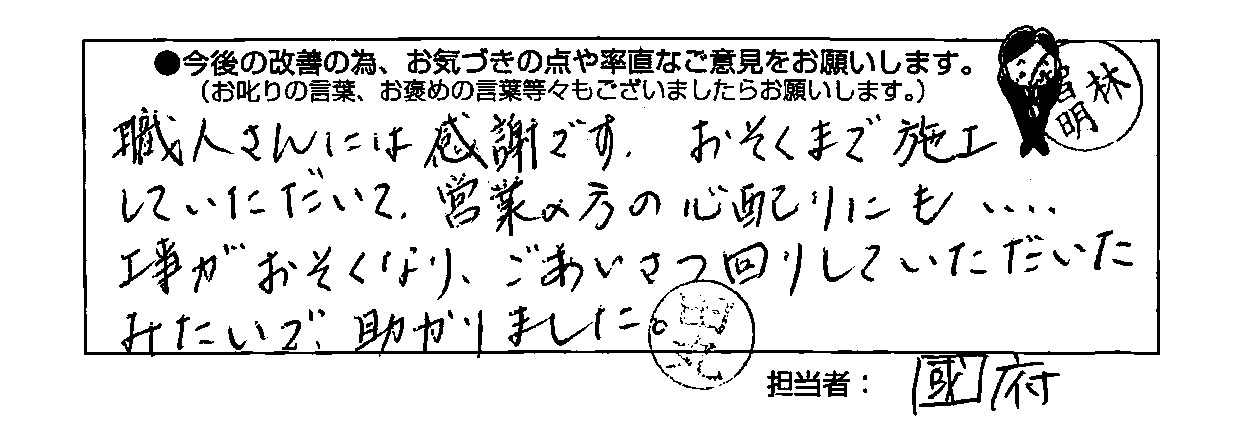 ●今後の改善の為、お気づきの点や率直なご意見をお願いします。
（お叱りの言葉、お褒めの言葉等々もございましたらお願いします。）
職人さんには感謝です. おそくまで施工
していただいて. 営業の方の心配りにも ....
工事がおそくなり、ごあいさつ回りしていただいた
みたいで、助かりました。
担当者： 國府
林
明